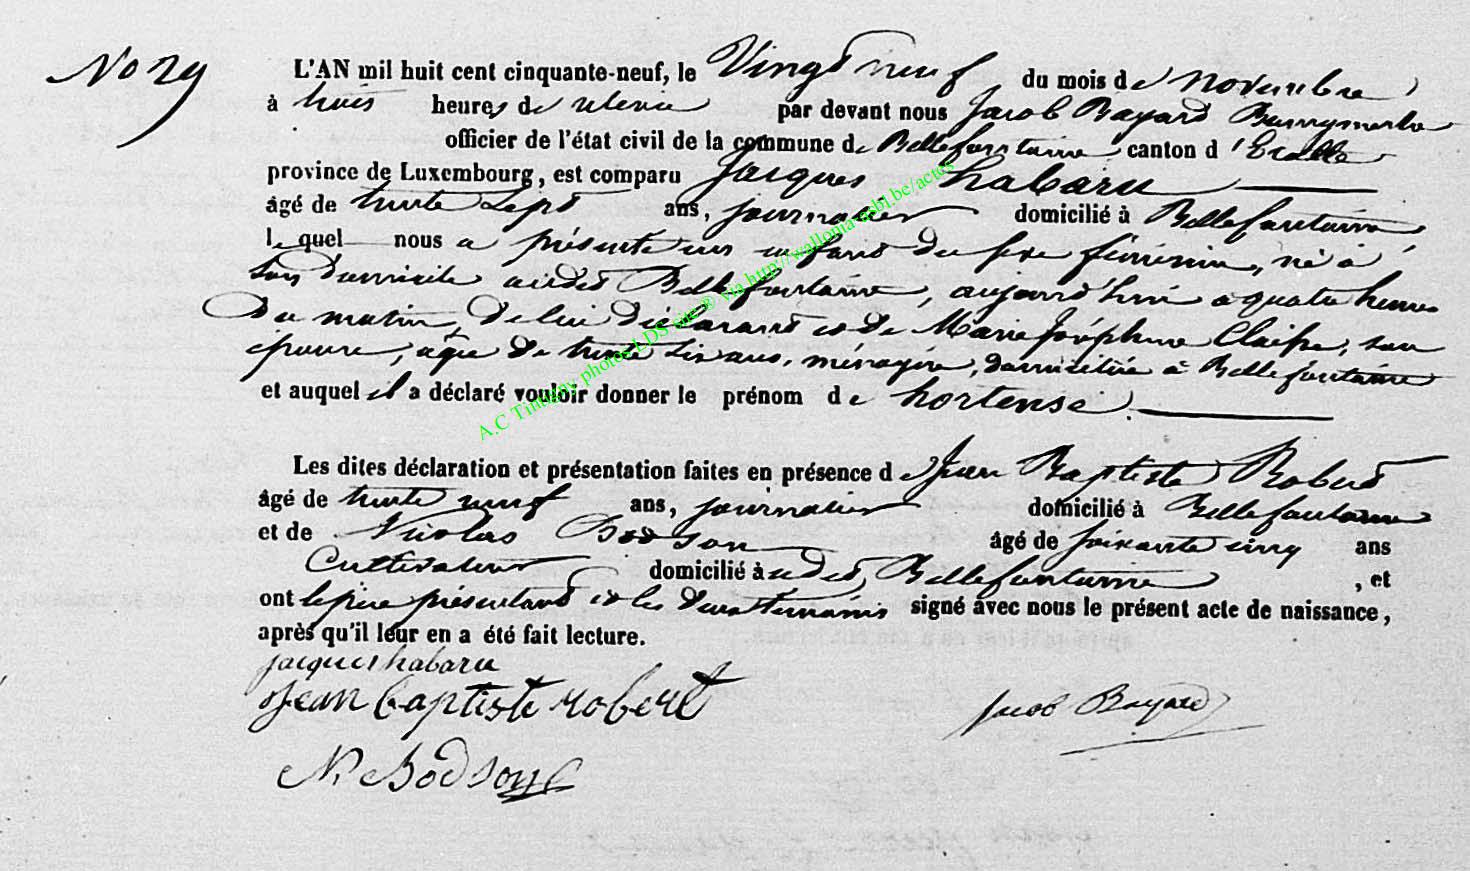 No 29
L'AN mil huit cent cinquante-neuf, le Vingt neuf du mois de novembre
à trois heures de relevée par devant nous Jacob Bayard Bourgmestre
officier de l'état civil de la commune de Bellefontaine canton d'Etalle
province de Luxembourg, est comparu Jacques habaru
âgé de trente sept ans, journalier domicilié à Bellefontaine,
lequel nous a présenté un enfant du sexe féminin, né à
son domicile audit Bellefontaine, aujourd'hui à quatre heures
du matin, de lui déclarant et de Marie Josephine Claisse, son
épouse, âgée de trente six ans, ménagère, domiciliée à Bellefontaine
et auquel il a déclaré vouloir donner le prénom de hortense.
Les dites déclaration et présentation faites en présence de Jean Baptiste Robert
âgé de trente neuf ans, journalier domicilié à Bellefontaine
et de Nicolas Bodson âgé de soixante cinq ans
Cultivateur domicilié à udit Bellefontaine, et
ont le père présentant et les deux temoins signé avec nous le présent acte de naissance,
après qu'il leur en a été fait lecture.
jacques habaru
Jean baptiste robert
Jacob Bayard
N. Bodson
A.C Tintigny photos LDS site ® via http://wallonia-asbl.be/actes